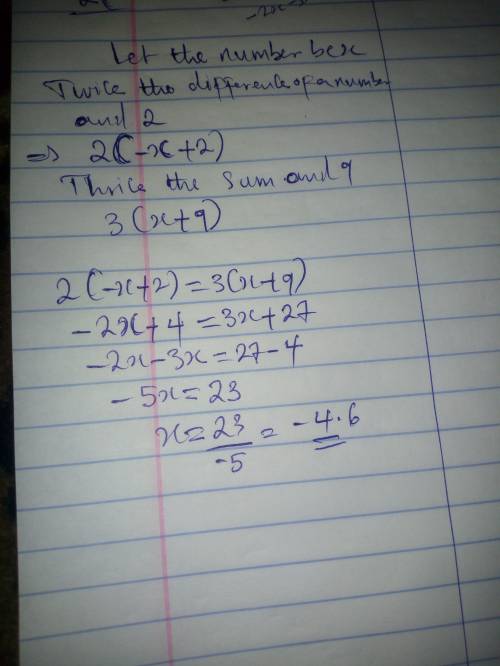 -2x
Let the number be x
Twice the difference of a number
and 2
⇒ 2(-x+2)
Thrice the sum and 9
3(x+9)
2(-x+2)=3(x+9)
-2x+4=3x+27
-2x-3x=27-4
-5x=23
x=23/-5=-4.6